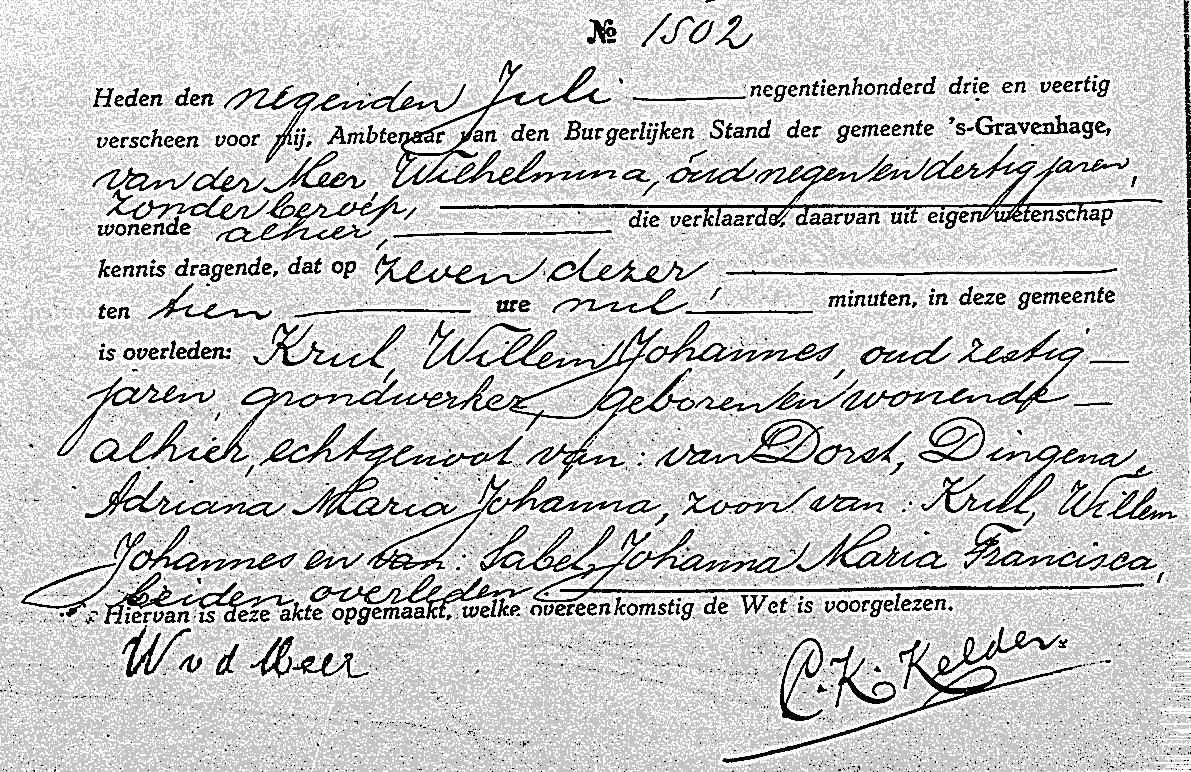 № 1502
Heden den negenden Juli negentienhonderd drie en veertig
verscheen voor mij, Ambtenaar van den Burgerlijken Stand der gemeente 's-Gravenhage,
van der Meer, Wilhelmina, oud negen en dertig jaren,
zonder beroep,
wonende alhier, die verklaarde, daarvan uit eigen wetenschap
kennis dragende, dat op zeven dezer,
ten tien ure nul minuten, in deze gemeente
is overleden: Krul, Willem Johannes, oud zestig
jaren, grondwerker, geboren en wonende
alhier, echtgenoot van: van Dorst, Dingena,
Adriana Maria Johanna, zoon van: Krul, Willem
Johannes en van: Sabel, Johanna Maria Francisca,
beiden overleden.
Hiervan is deze akte opgemaakt, welke overeenkomstig de Wet is voorgelezen.
W v d Meer C. K. Kelder